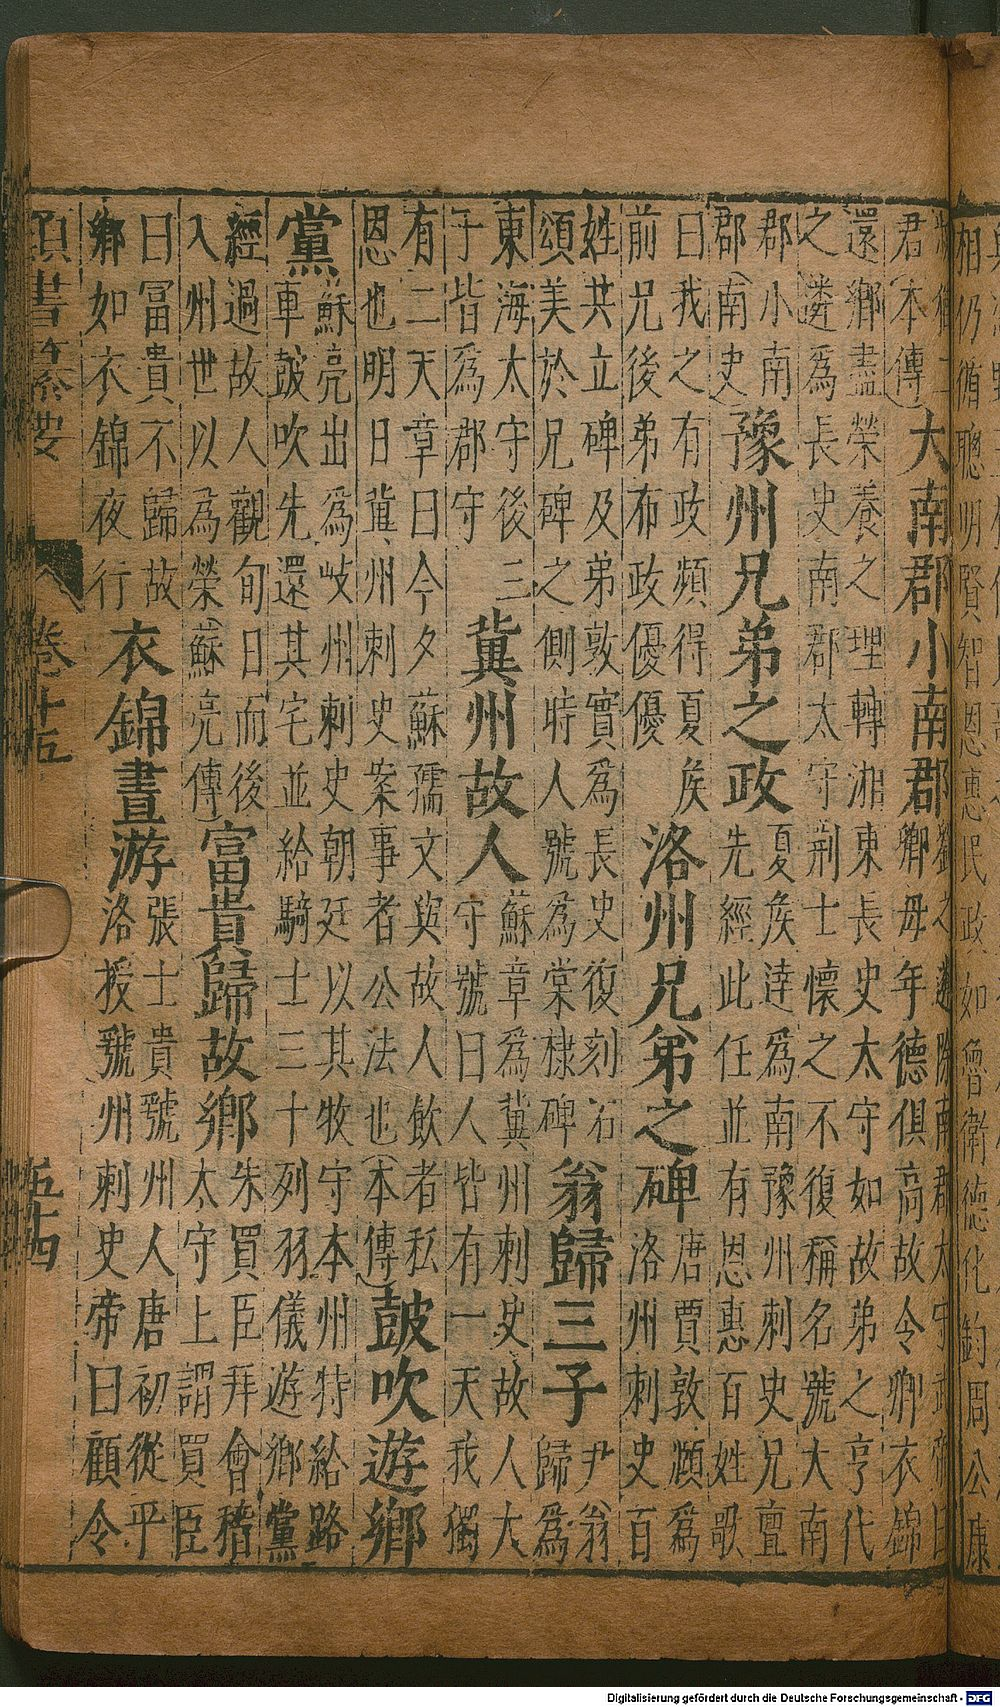 相仍循聰明賢智恩惠民政如魯衛德化鈞周公康
君(本傳)
大南郡小南郡
劉之遴除南郡太守武帝曰
卿母年德俱高故令卿衣錦
還鄉盡榮養之理轉湘東長史太守如故弟之亨代
之遴為長史南郡太守荆士懷之不復稱名號大南
郡小南
郡(南史)
豫州兄弟之政
夏侯逹為南豫州刺史兄亶
先經此任並有恩惠百姓歌
曰我之有政頻得夏侯
前兄後弟布政優優
洛州兄弟之碑
唐賈敦頤為
洛州刺史百
姓共立碑及弟敦實為長史復刻石
頌美於兄碑之側時人號為棠棣碑
翁歸三子
尹翁
歸為
東海太守後三
子皆為郡守
冀州故人
蘇章為冀州刺史故人大
守號曰人皆有一天我獨
有二天章曰今夕蘇孺文與故人飲者私
恩也明日冀州刺史案事者公法也(本傳)
鼓吹遊鄉
黨
蘇亮出為岐州刺史朝廷以其牧守本州特給路
車鼓吹先還其宅並給騎士三十列羽儀遊鄉黨
經過故人觀旬日而後
入州世以為榮(蘇亮傳)
富貴歸故鄉
朱買臣拜會稽
太守上謂買臣
曰冨貴不歸故
鄉如衣錦夜行
衣錦晝游
張士貴虢州人唐初從平
洛授虢州刺史帝曰顧令
類書纂要 卷十五 五十四
Digitalisierung gefördert durch die Deutsche Forschungsgemeinschaft - DFG